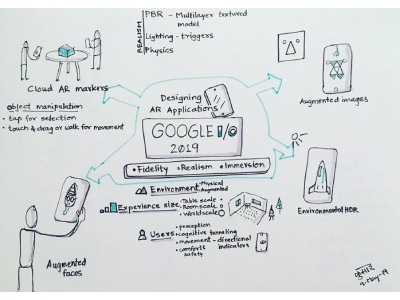 REALISM
PBR - Multilayer textured model
Lighting - triggers
Physics
Cloud AR markers
object manipulation
• tap for selection
• touch & drag or walk for movement
Designing
AR Applications
GOOGLE I/O
2019
• Fidelity • Realism • Immersion
Augmented images
Environmental HDR
Augmented
faces
Environment
Physical
Augmented
Experience size
Table scale
Room scale
World scale
Users
perception
cognitive tunneling
movement - directional indicators
comfort & safety
9-May-19